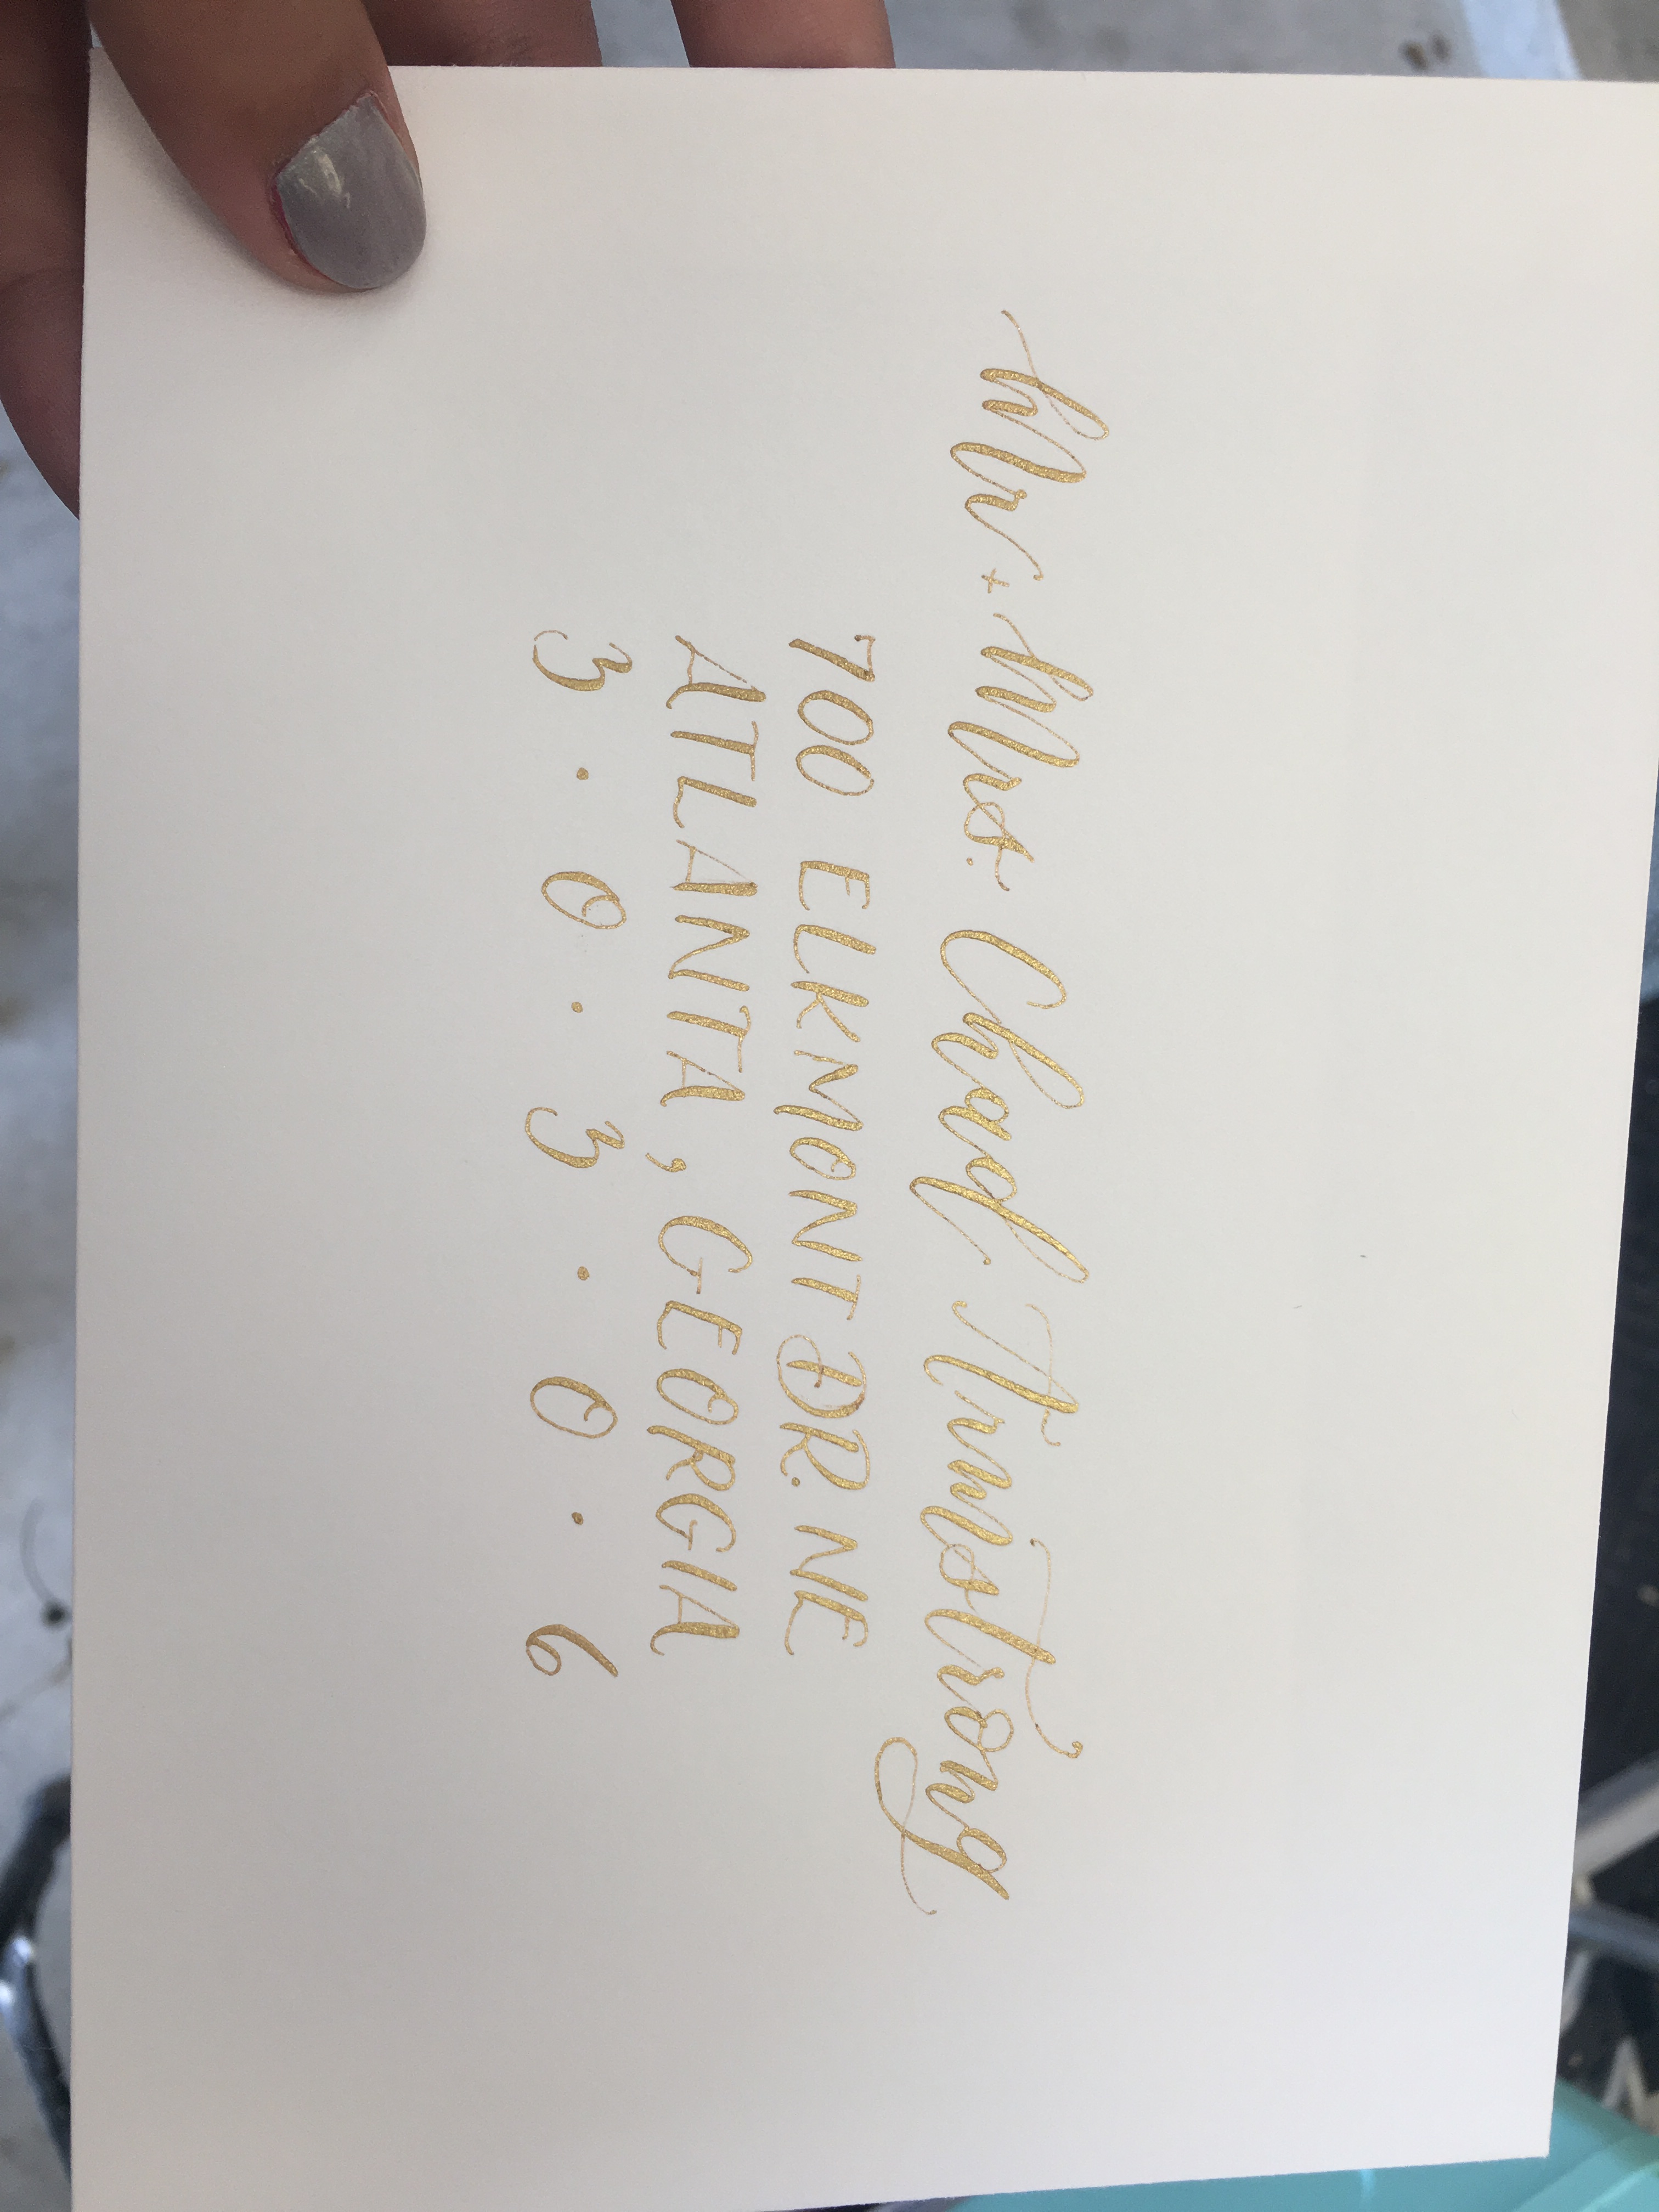 Mr + Mrs. Chad Armstrong
700 ELKMONT DR. NE
ATLANTA, GEORGIA
3 . 0 . 3 . 0 . 6